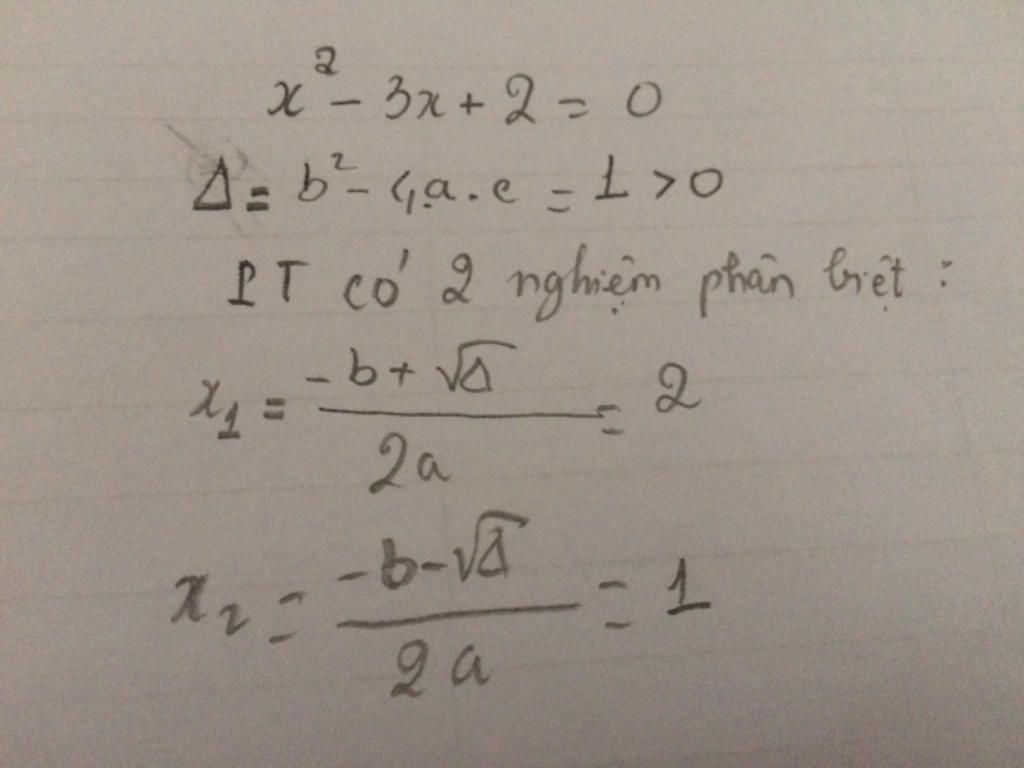 x² - 3x + 2 = 0
Δ = b² - 4.a.c = 1 > 0
PT có 2 nghiệm phân biệt :
x₁ = (-b + √Δ) / 2a = 2
x₂ = (-b - √Δ) / 2a = 1